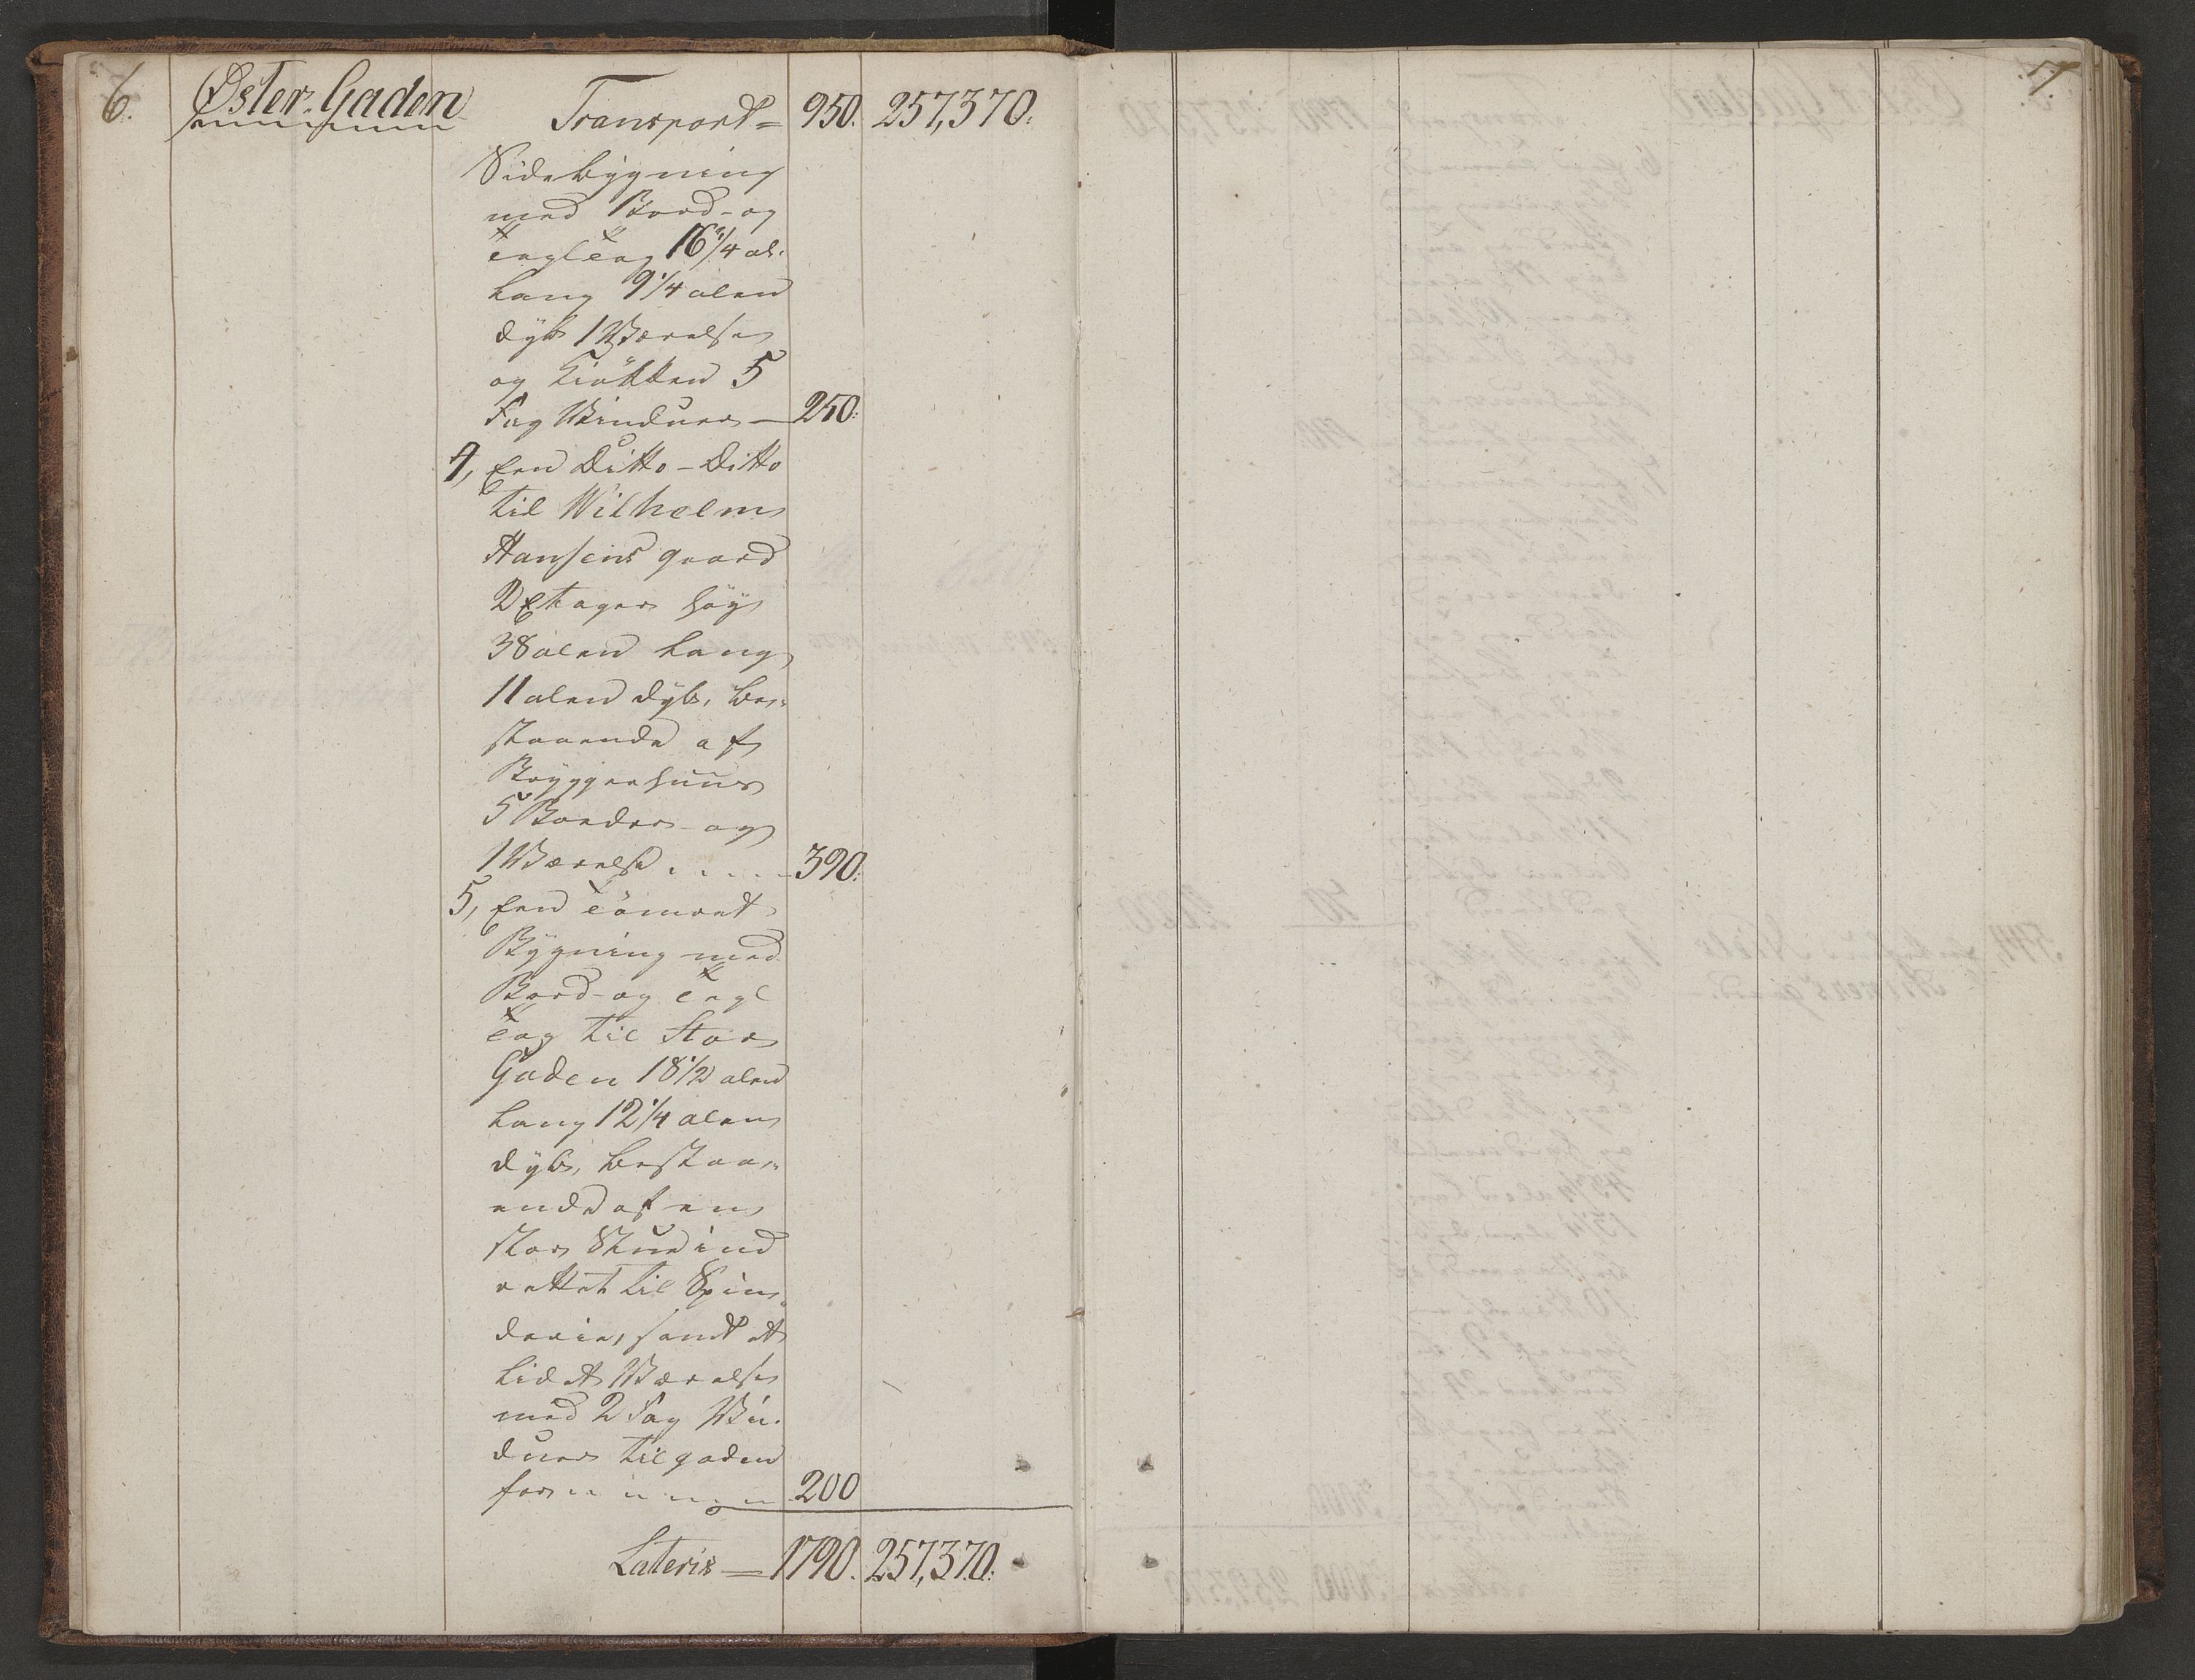 6. Øster-Gaden
Transport = 950. 257,370.
Sidebÿgning
med Bord- og
Tegl Tag 16 1/4 al:
lang 9 1/4 alen
dÿb 1 Værelse
og Kiökken 5
Fag Vinduer — 250.
4, Een Ditto - Ditto
til Wilhelm
Hansens gaard
2 Etager höÿ
38 alen lang
11 alen dÿb, be-
staaende af
Brÿggerhuus
5 Boeder og
1 Værelse . . . . - 390.
5, Een Tömret
Bÿgning med
Bord- og Tegl
Tag til Stor
Gaden 18 1/2 alen
lang 12 1/4 alen
dÿb, bestaa-
ende af en
stor Stue ind
rettet til Spin-
derie, samt et
lidet Værelse
med 2 Fag Vin-
duer til gaden
for 200
Lateris = 1790. 257,370.
17.